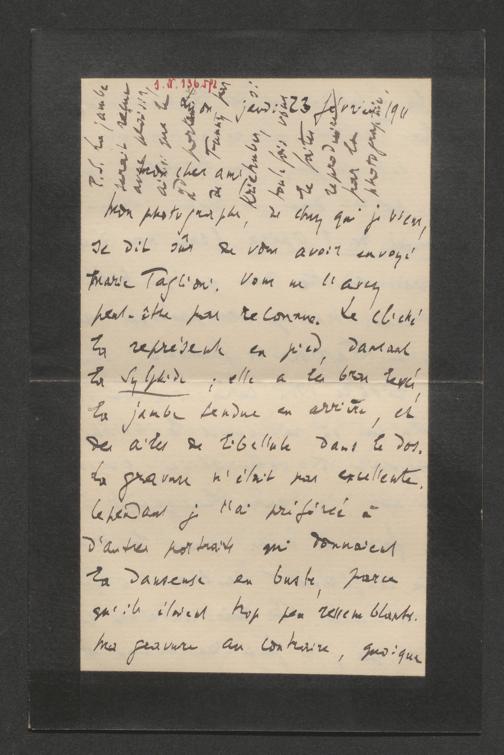 I.N. 136.592
jeudi 23 février 1911
mon cher ami
Mon photographe, de chez qui je viens,
se dit sûr de vous avoir envoyé
Marie Taglioni. Vous ne l'avez
peut-être pas reconnue. Le cliché
la représente en pied, dansant
la Sylphide ; elle a les bras levés,
la jambe tendue en arrière, et
des ailes de libellule dans le dos.
La gravure n'était pas excellente.
Cependant je l'ai préférée à
d'autres portraits qui donnaient
la danseuse en buste, parce
qu'ils étaient trop peu ressemblants.
Ma gravure au contraire, quoique
P.S. La jambe
serait reçue
avec plaisir,
ainsi que le
portrait
de Fanny par
Kriehuber, si
toutefois vous
le faites
reproduire
par la
photographie.